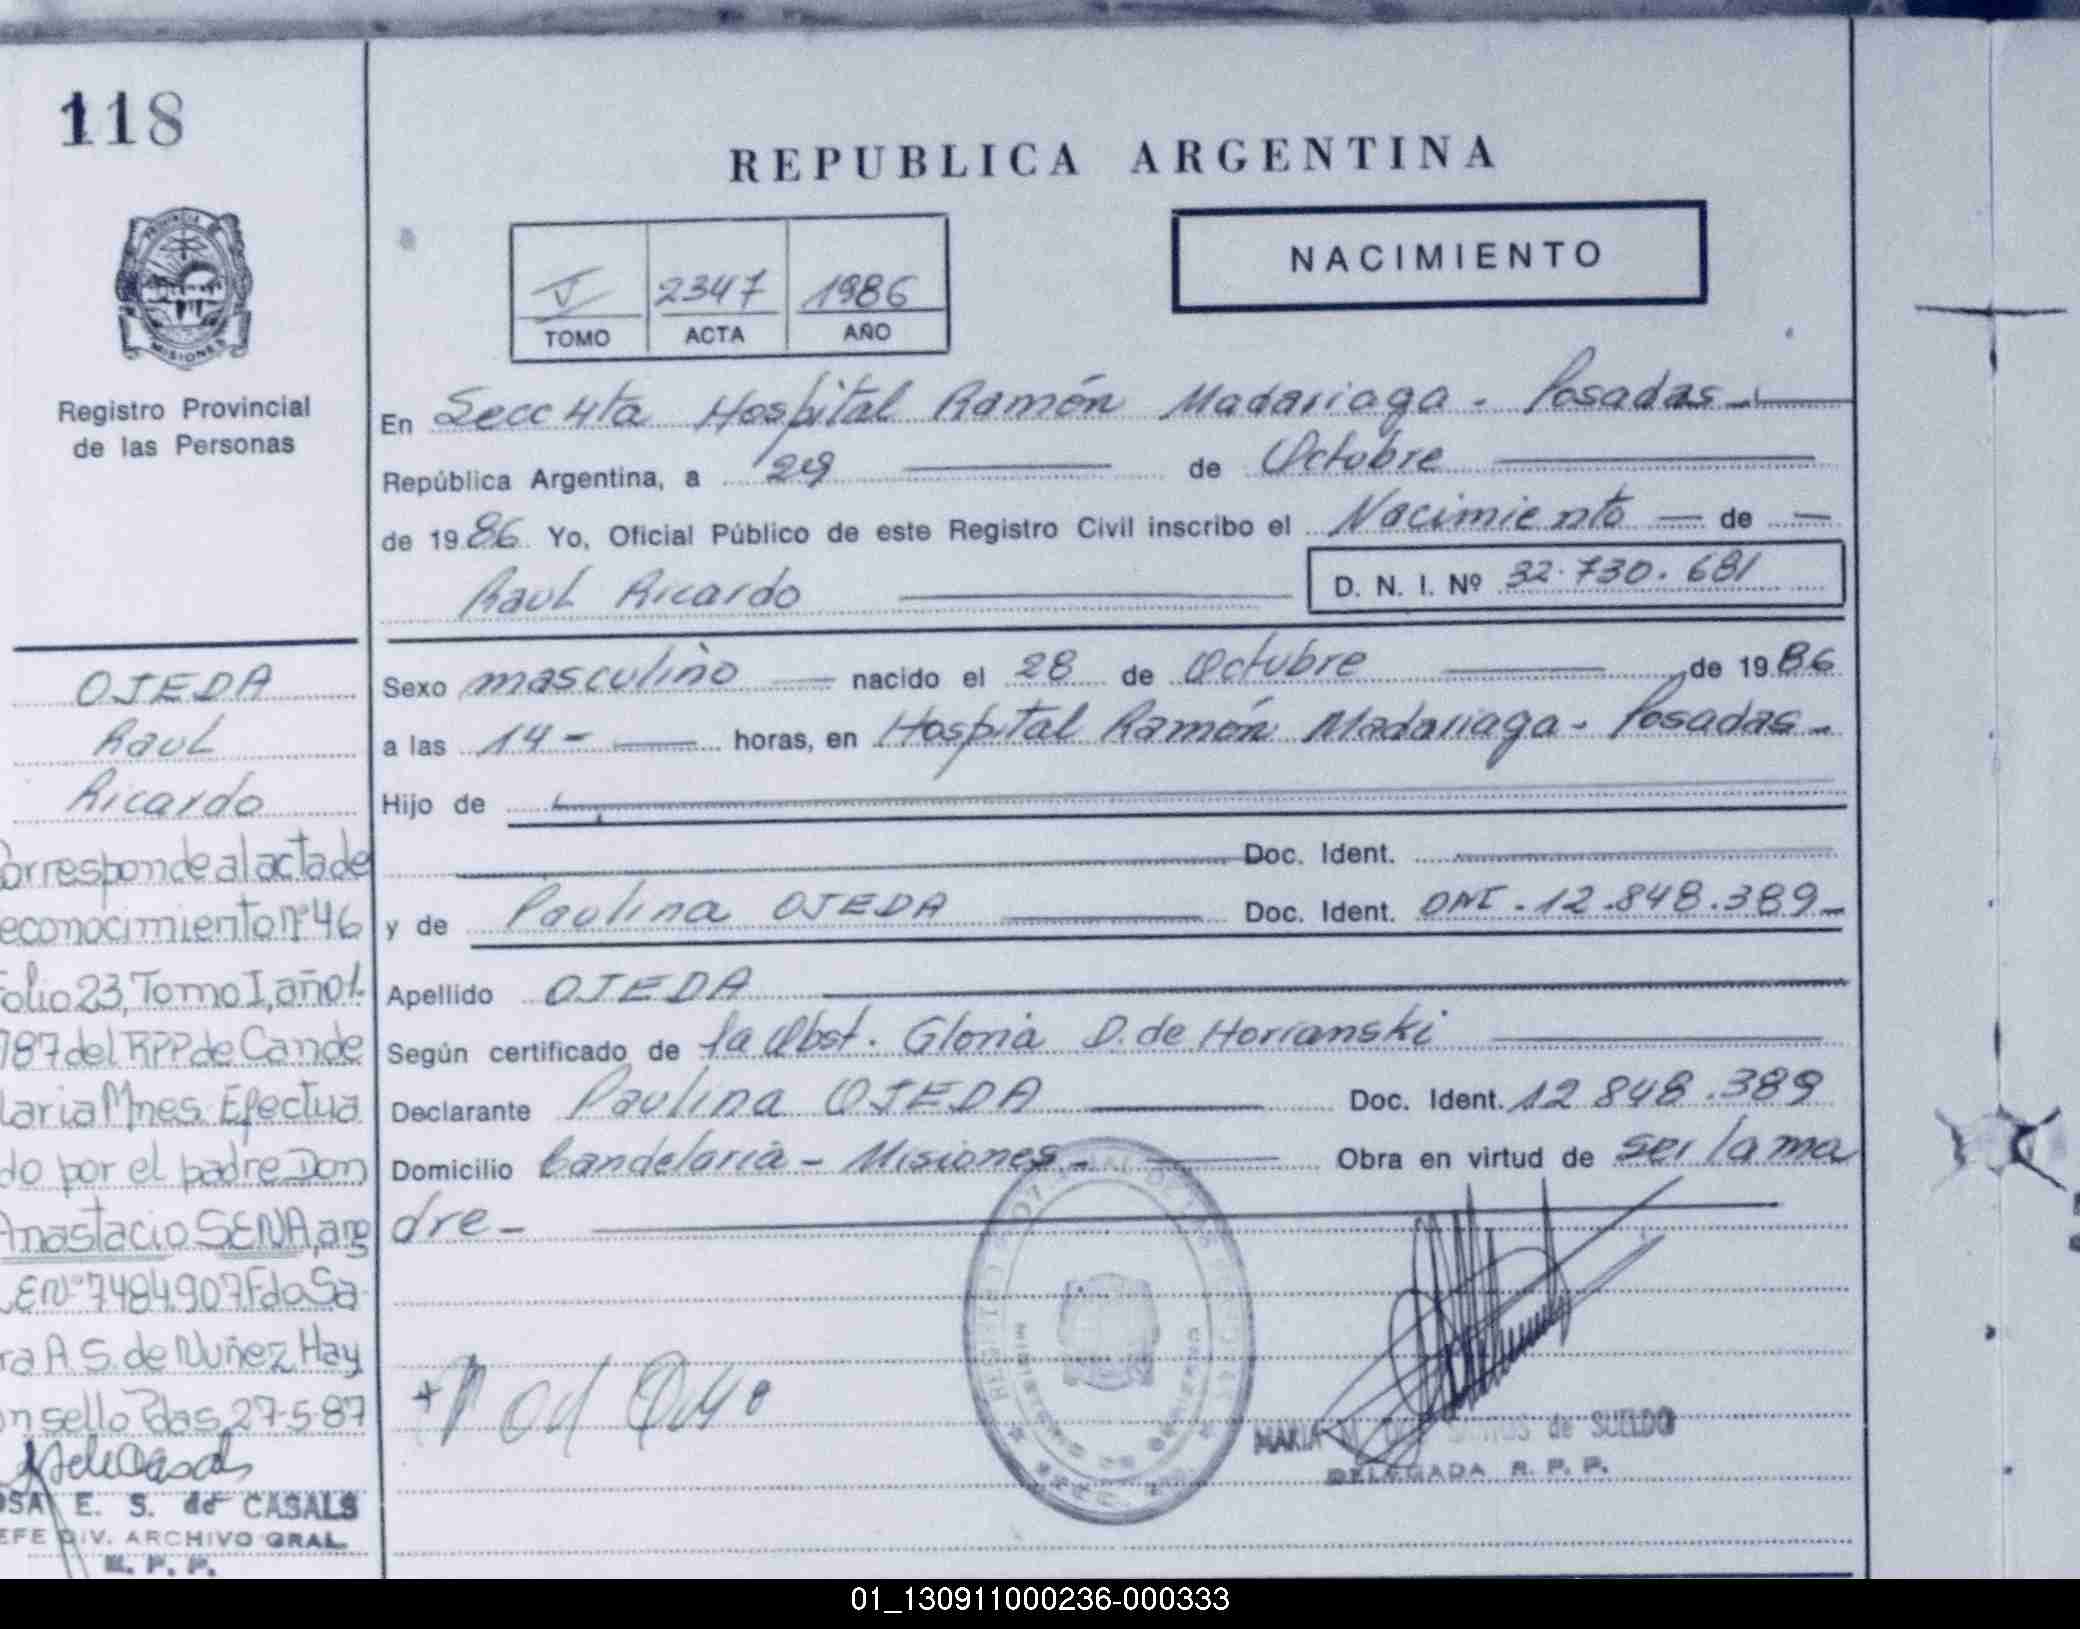 118
REPUBLICA ARGENTINA
NACIMIENTO
2347 1986
TOMO ACTA AÑO
PROVINCIA
MISIONES
Registro Provincial
de las Personas
En Secc 4ta Hospital Ramón Madariaga - Posadas -
República Argentina, a 29 de Octubre
de 1986 Yo, Oficial Público de este Registro Civil inscribo el Nacimiento de
Raul Ricardo D. N. I. Nº 32.730.681
Sexo masculino nacido el 28 de Octubre de 1986
a las 14 - horas, en Hospital Ramón Madariaga - Posadas -
Hijo de
Doc. Ident.
y de Paulina OJEDA Doc. Ident. DNI. 12.848.389 -
Apellido OJEDA
Según certificado de la Obst. Gloria D. de Horianski
Declarante Paulina OJEDA Doc. Ident. 12 848.389
Domicilio Candelaria - Misiones - Obra en virtud de ser la ma
dre -
MARIA de SUELDO
DELEGADA R. P. P.
OJEDA
Raul
Ricardo
orresponde al acta de
econocimiento nº 46
olio 23, Tomo I, año 1.
987 del RPP de Cande
laria Mnes. Efectua
do por el padre Don
Anastacio SENA, arg
LE Nº 7484.907 Fdo Sa-
ra A. S. de Nuñez. Hay
un sello Pdas, 27-5-87
OSA E. S. de CASALS
EFE DIV. ARCHIVO GRAL.
R. P. P.
01_130911000236-000333